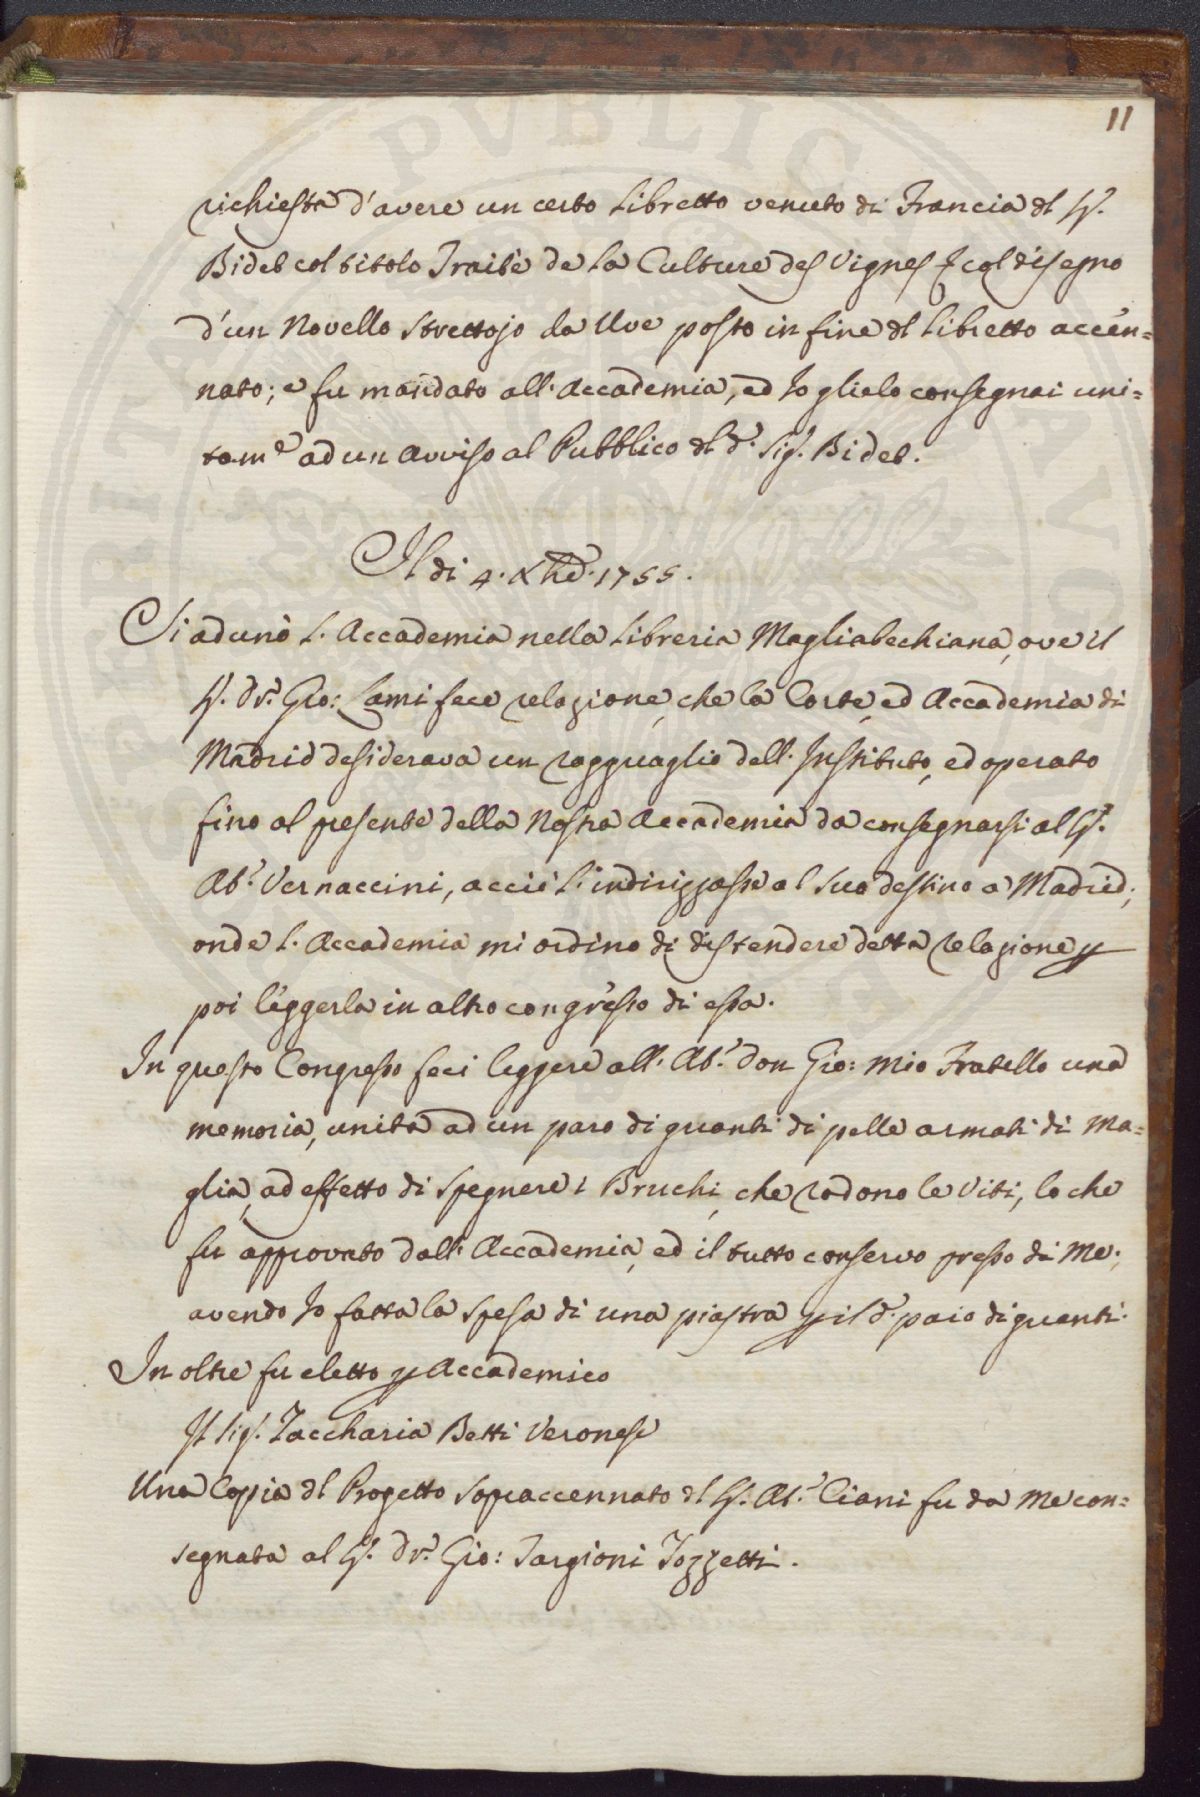 11
richiesta d'avere un certo Libretto venuto di Francia dl Sr.
Bidet col titolo Traitè de la Culture des Vignes &c col disegno
d'un Novello Strettojo da Uve posto in fine dl Libretto accen=
nato; e fu mandato all'Accademia, ed Io glielo consegnai uni=
tam.e ad un Avviso al Pubblico dl d.o Sig.r Bidet.
Il di 4. Xbre. 1755.
Si adunò l'Accademia nella Libreria Magliabechiana, ove il
Sr. Dr. Gio: Lami fece relazione, che la Corte, ed Accademia di
Madrid desiderava un ragguaglio dell'Instituto, ed operato
fino al presente della Nostra Accademia da consegnarsi al Sr.
Ab.e Vernaccini, acciò l'indirizzasse al suo destino a Madrid;
onde l'Accademia mi ordinò di distendere detta relazione p
poi leggerla in altro congresso di essa.
In questo Congresso feci leggere all'Ab.e Don Gio: mio Fratello una
memoria, unita ad un paro di guanti di pelle armati di Ma=
glia, ad effetto di spegnere i Bruchi, che rodono le Viti, lo che
fu approvato dall'Accademia, ed il tutto conservo presso di Me;
avendo Io fatta la spesa di una piastra p il d.o paio di guanti.
In oltre fu eletto p Accademico
Il Sig.r Zaccharia Betti Veronese
Una Copia dl Progetto sopraccennato dl Sr. Ab.e Ciani fu da Me con=
segnata al Sr. Dr. Gio: Targioni Tozzetti.